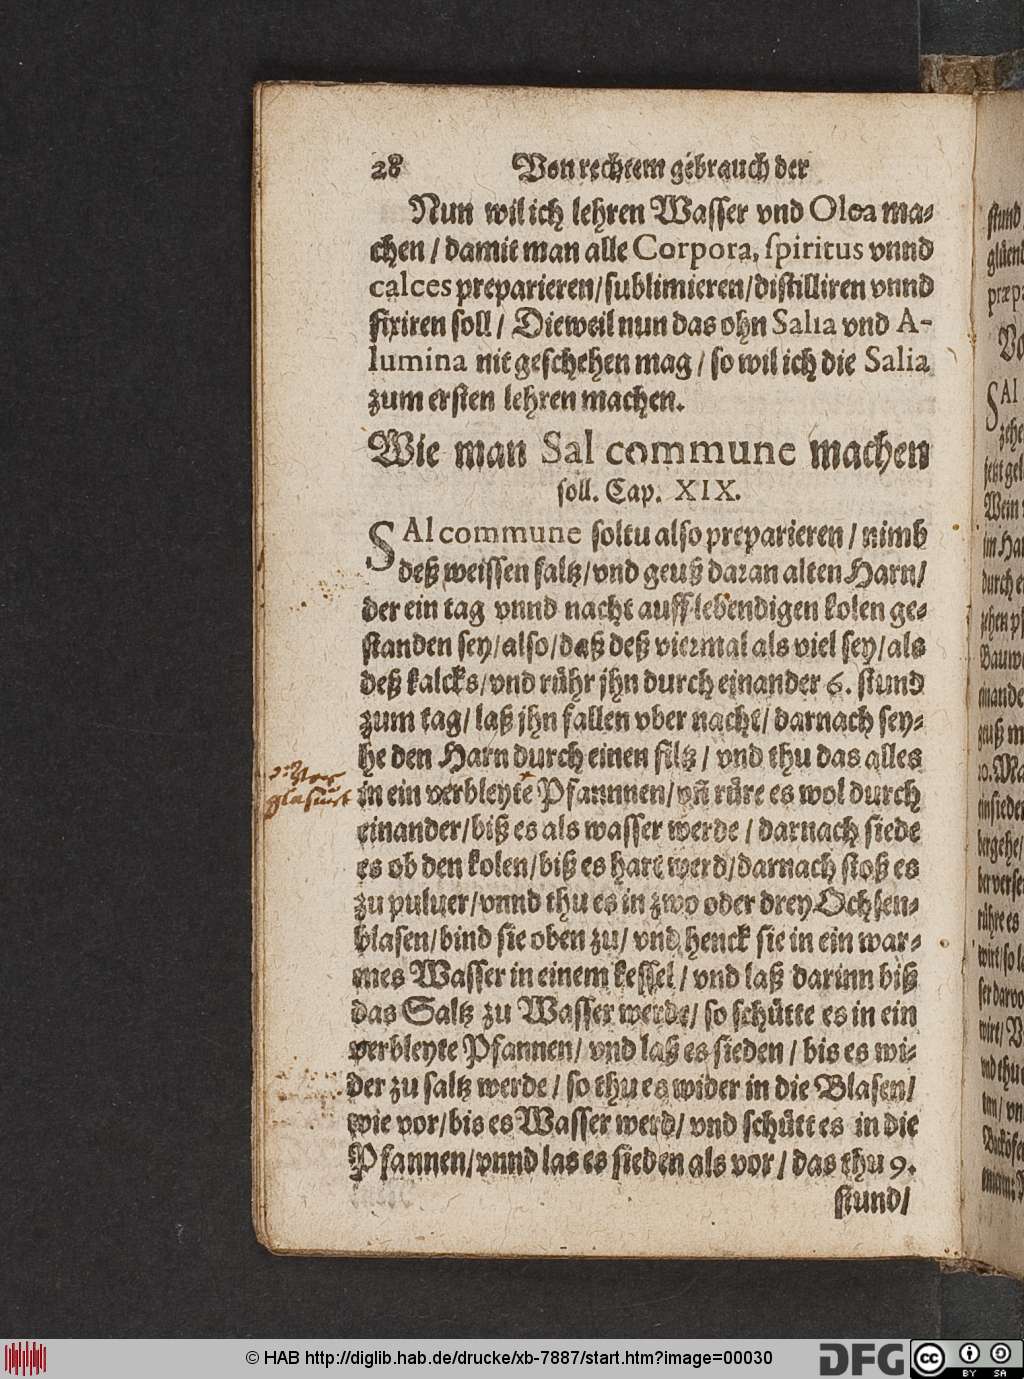 28 Von rechtem gebrauch der
Nun wil ich lehren Wasser vnd Olea ma-
chen / damit man alle Corpora, spiritus vnnd
calces preparieren/sublimieren/distilliren vnnd
fixiren soll / Dieweil nun das ohn Salia vnd A-
lumina nit geschehen mag / so wil ich die Salia
zum ersten lehren machen.
Wie man Sal commune machen
soll. Cap. XIX.
SAl commune soltu also preparieren / nimb
deß weissen saltz/vnd geuß daran alten Harn/
der ein tag vnnd nacht auff lebendigen kolen ge-
standen sey/also/daß deß viermal als viel sey/als
deß kalcks/vnd rühr jhn durch einander 6. stund
zum tag/ laß jhn fallen vber nacht/ darnach sey-
he den Harn durch einen filtz / vnd thu das alles
in ein verbleyte Pfannnen/ vñ rüre es wol durch
einander/biß es als wasser werde / darnach siede
es ob den kolen/biß es hart werd/darnach stoß es
zu puluer/vnnd thu es in zwo oder drey Ochsen-
blasen/bind sie oben zu/ vnd henck sie in ein war-
mes Wasser in einem kessel / vnd laß darinn biß
das Saltz zu Wasser werde/ so schütte es in ein
verbleyte Pfannen/ vnd laß es sieden / bis es wi-
der zu saltz werde / so thu es wider in die Blasen/
wie vor/bis es Wasser werd/ vnd schütt es in die
Pfannen/vnnd las es sieden als vor / das thu 9.
stund/
© HAB http://diglib.hab.de/drucke/xb-7887/start.htm?image=00030
DFG
CC BY SA